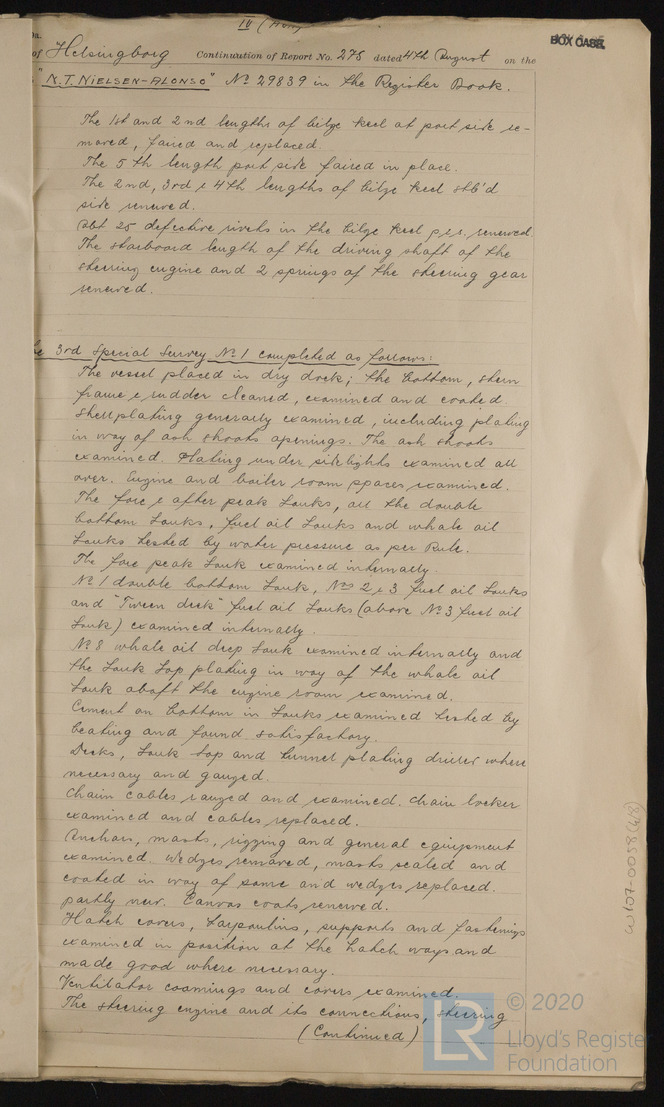 IV
BOX CASE
of Helsingborg Continuation of Report No. 275 dated 4th August on the
"N.T. NIELSEN-ALONSO" No 29839 in the Register Book.
The 1st and 2nd lengths of bilge keel at port side re-
moved, faired and replaced.
The 5th length port side faired in place.
The 2nd, 3rd & 4th lengths of bilge keel stb'd
side renewed.
abt 25 defective rivets in the bilge keel p.s. renewed
The starboard length of the driving shaft of the
steering engine and 2 springs of the steering gear
renewed.
3rd Special Survey No 1 completed as follows:
The vessel placed in dry dock; the bottom, stern
frame & rudder cleaned, examined and coated.
Shellplating generally examined, including plating
in way of ash shoots openings. The ash shoots
examined. Plating under sidelights examined all
over. Engine and boiler room spaces examined.
The fore & after peak tanks, all the double
bottom tanks, fuel oil tanks and whale oil
tanks tested by water pressure as per Rule.
The fore peak tank examined internally.
No 1 double bottom tank, Nos 2 & 3 fuel oil tanks
and "Tween deck" fuel oil tanks (above No 3 fuel oil
tank) examined internally.
No 8 whale oil deep tank examined internally and
the tank top plating in way of the whale oil
tank abaft the engine room examined.
Cement on bottom in tanks examined tested by
beating and found satisfactory.
Decks, tank top and tunnel plating driller where
necessary and gauged.
Chain cables ranged and examined. Chain locker
examined and cables replaced.
Anchors, masts, rigging and general equipment
examined. Wedges removed, masts scaled and
coated in way of same and wedges replaced.
partly new. Canvas coats renewed.
Hatch covers, tarpaulins, supports and fastenings
examined in position at the hatch ways and
made good where necessary.
Ventilator coamings and covers examined.
The steering engine and its connections, steering
(Continued)
W107-0058(4/8)
LR
© 2020
Lloyd's Register
Foundation